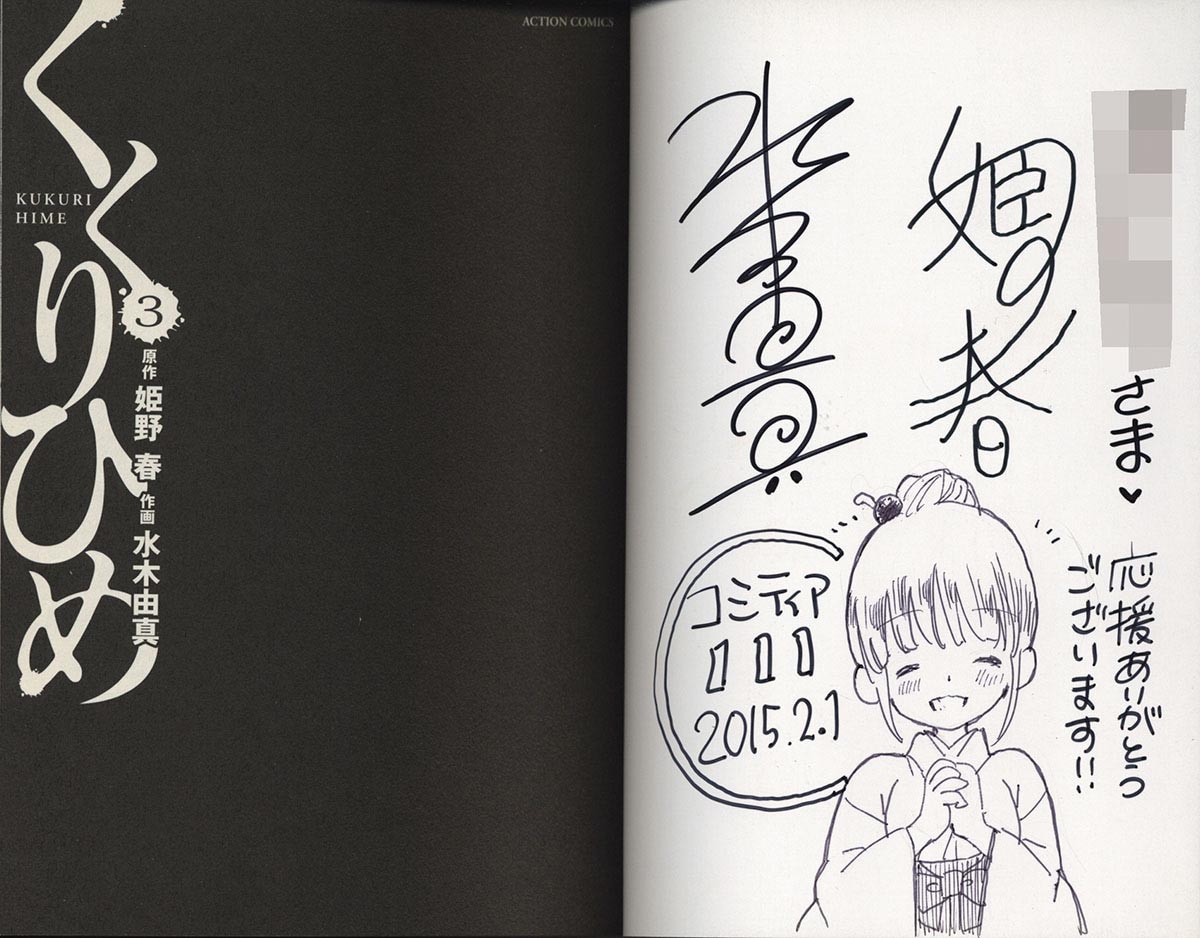 ACTION COMICS
くくりひめ
KUKURI
HIME
3
原作 姫野 春 作画 水木由真
さま♥
応援ありがとう
ございます!!
姫の春
水木由真
コミティア
111
2015.2.1